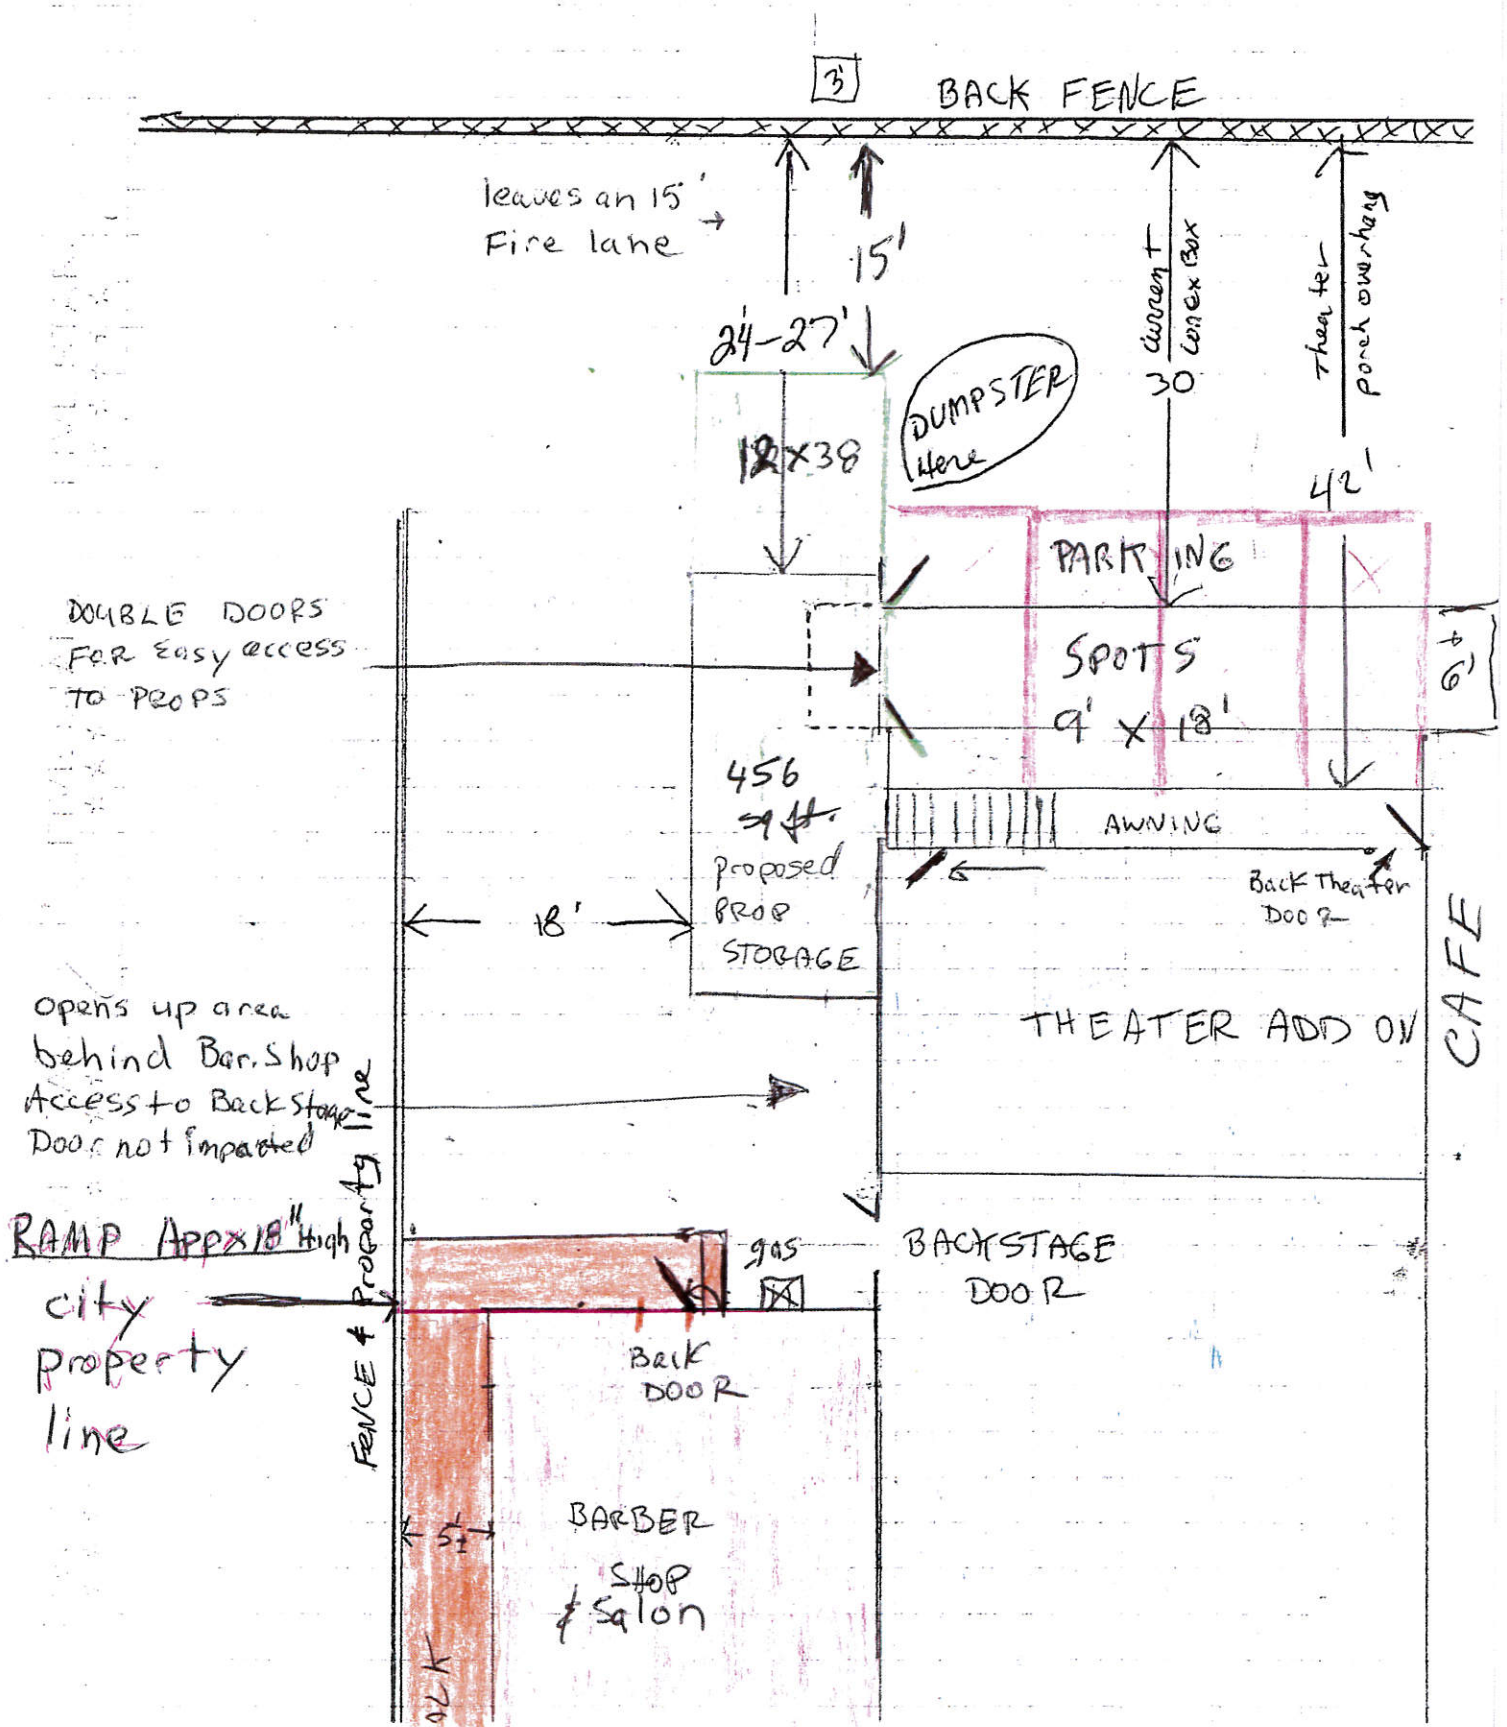 3'
BACK FENCE
leaves an 15'
Fire lane
15'
24-27'
current
conex Box
30
theater
porch overhang
42'
DUMPSTER
Here
12x38
PARKING
SPOTS
9' x 18'
6'±
DOUBLE DOORS
FOR Easy access
TO PROPS
456
sq ft.
proposed
PROP
STORAGE
AWNING
Back Theater
DOOR
18'
CAFE
THEATER ADD ON
opens up area
behind Bar. Shop
Access to Back Stage
Door not impacted
FENCE & Property line
RAMP Appx 18" High
city
property
line
gas
BACKSTAGE
DOOR
Back
DOOR
5±
BARBER
SHOP
& Salon
ALK